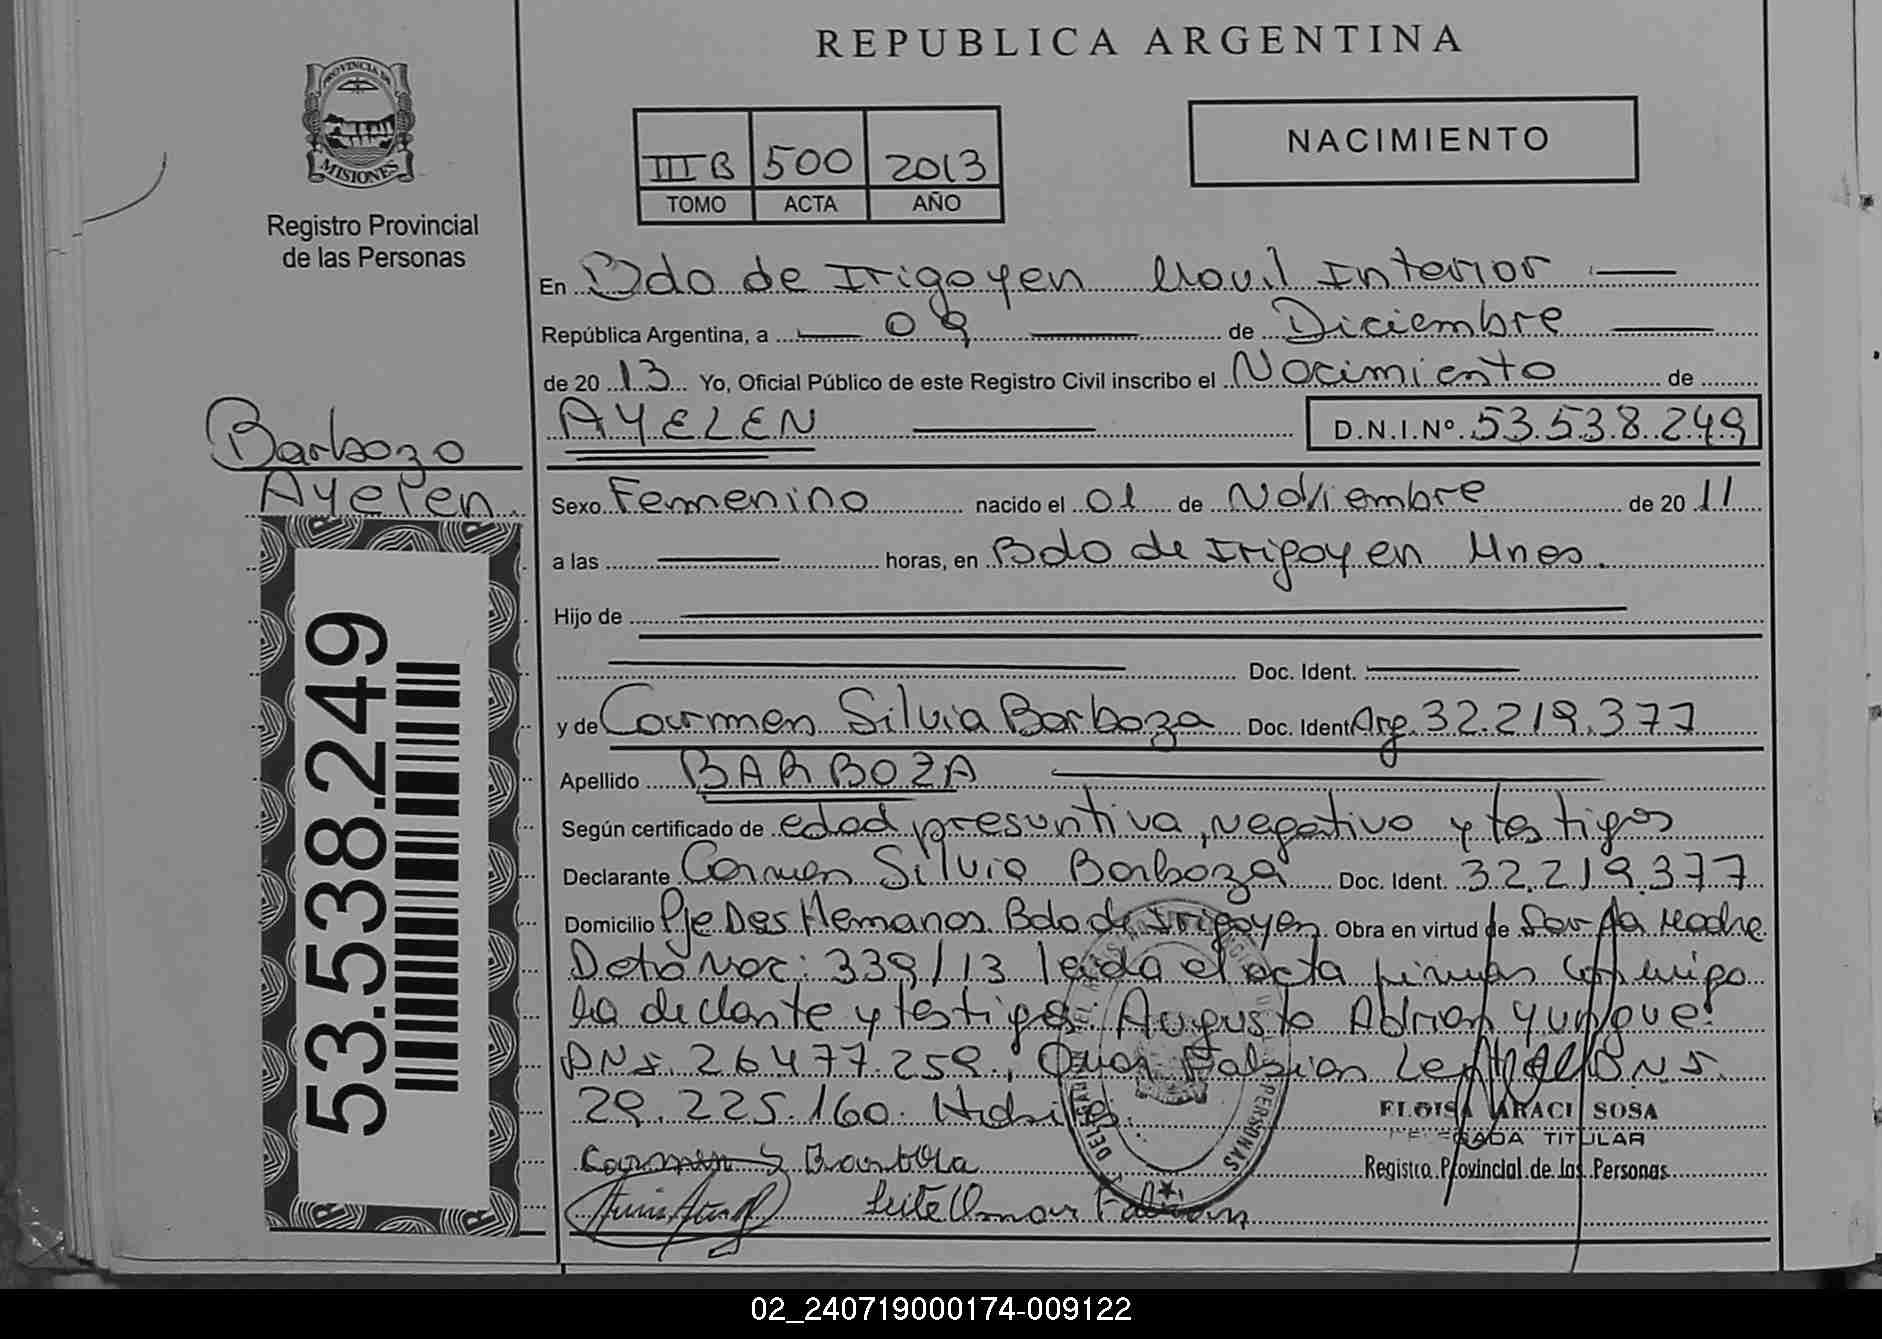 REPUBLICA ARGENTINA
PROVINCIA DE
MISIONES
Registro Provincial
de las Personas
III B 500 2013
TOMO ACTA AÑO
NACIMIENTO
En Bdo de Irigoyen Movil Interior
República Argentina, a 09 de Diciembre
de 20 13 Yo, Oficial Público de este Registro Civil inscribo el Nacimiento de
AYELEN D.N.I.Nº 53.538.249
Barboza
Ayelen
Sexo Femenino nacido el 01 de Noviembre de 20 11
a las horas, en Bdo de Irigoyen Mnes.
Hijo de
Doc. Ident.
y de Carmen Silvia Barboza Doc. Ident Arg. 32.219.377
Apellido BARBOZA
Según certificado de edad presuntiva, negativo y testigos
Declarante Carmen Silvia Barboza Doc. Ident. 32.219.377
Domicilio Pje Dos Hermanos Bdo de Irigoyen Obra en virtud de Ser la Madre
Nac: 339/13 leida el acta firman conmigo
la declarante y testigos: Augusto Adrian Yunque
DNI. 26.477.259, Omar Fabian DNI.
29.225.160.
Carmen S Barboza
Leite Omar Fabian
ELOISA ARACI SOSA
DELEGADA TITULAR
Registro Provincial de las Personas
PERSONAS
53.538.249
02_240719000174-009122